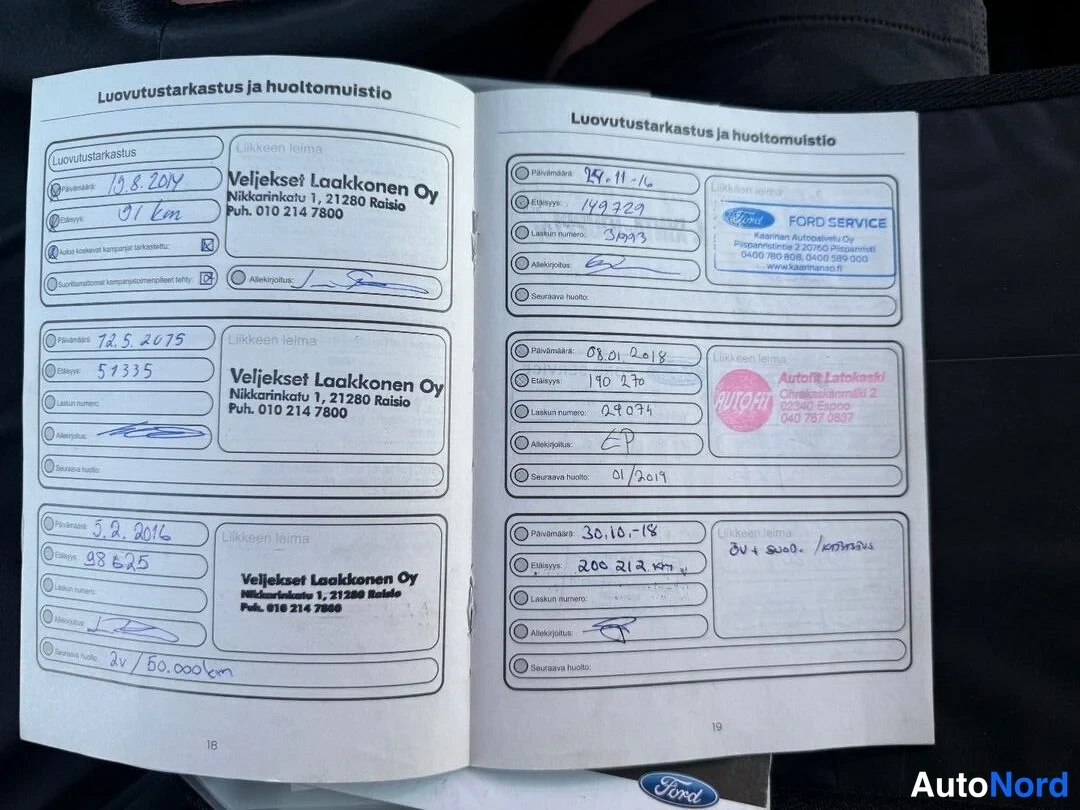 Luovutustarkastus ja huoltomuistio
Luovutustarkastus
Päivämäärä: 19.8.2014
Etäisyys: 91 km
Autoa koskevat kampanjat tarkastettu:
Suorittamattomat kampanjatoimenpiteet tehty:
Liikkeen leima
Veljekset Laakkonen Oy
Nikkarinkatu 1, 21280 Raisio
Puh. 010 214 7800
Allekirjoitus:
Päivämäärä: 12.5.2015
Etäisyys: 51335
Laskun numero:
Allekirjoitus:
Seuraava huolto:
Liikkeen leima
Veljekset Laakkonen Oy
Nikkarinkatu 1, 21280 Raisio
Puh. 010 214 7800
Päivämäärä: 5.2.2016
Etäisyys: 98625
Laskun numero:
Allekirjoitus:
Seuraava huolto: 2v/50.000km
Liikkeen leima
Veljekset Laakkonen Oy
Nikkarinkatu 1, 21280 Raisio
Puh. 010 214 7800
18
Luovutustarkastus ja huoltomuistio
Päivämäärä: 24.11-16
Etäisyys: 149729
Laskun numero:
Allekirjoitus:
Seuraava huolto:
Liikkeen leima
Ford FORD SERVICE
Kaarinan Autopalvelu Oy
Piispanristintie 2 20760 Piispanristi
0400 780 808, 0400 589 000
www.kaarinanap.fi
Päivämäärä: 08.01.2018
Etäisyys: 190 270
Laskun numero: 29074
Allekirjoitus: EP
Seuraava huolto: 01/2019
Liikkeen leima
AUTOFIT
Autofit Latokaski
Ohrakaskenmäki 2
02340 Espoo
040 767 0837
Päivämäärä: 30.10.-18
Etäisyys: 200.212.km
Laskun numero:
Allekirjoitus:
Seuraava huolto:
Liikkeen leima
öv + suod.
19
Ford
AutoNord